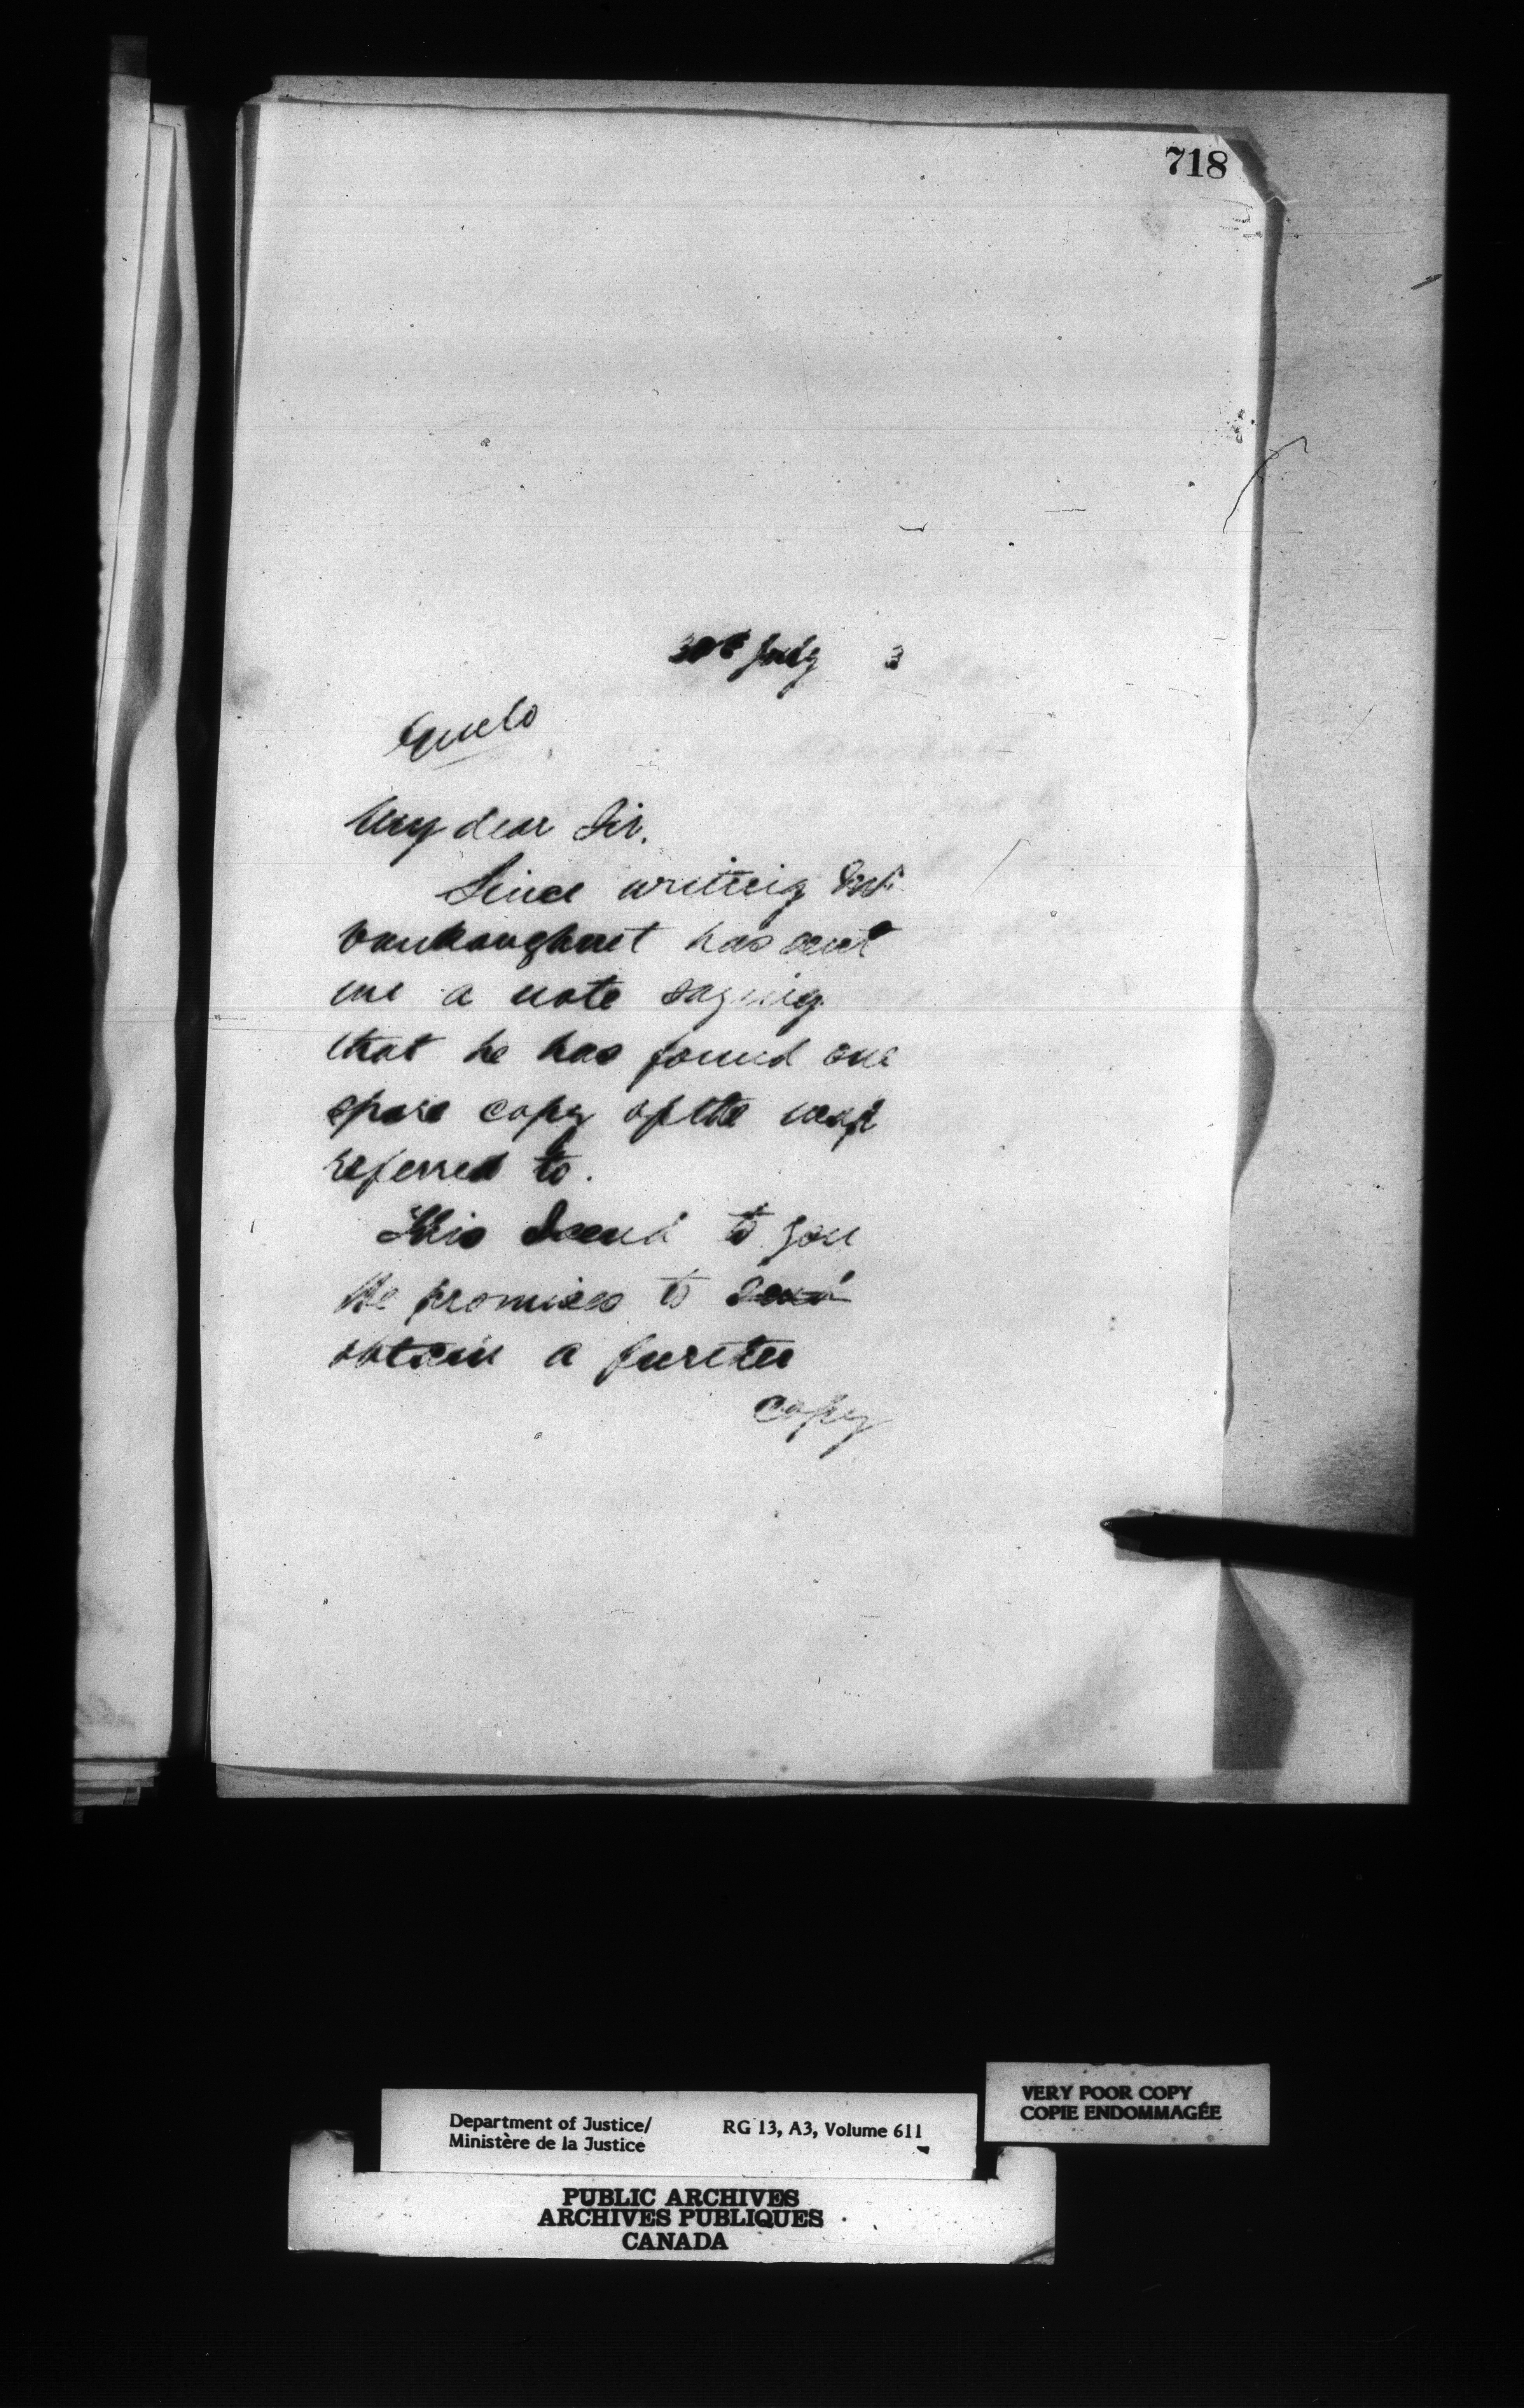 718
July 3
My dear Sir.
Since writing Mr.
Vankoughnet has sent
me a note saying
that he has found one
spare copy of the map
referred to.
This I send to you
He promises to send
obtain a further
copy
VERY POOR COPY
COPIE ENDOMMAGÉE
Department of Justice/ RG 13, A3, Volume 611
Ministère de la Justice
PUBLIC ARCHIVES
ARCHIVES PUBLIQUES
CANADA